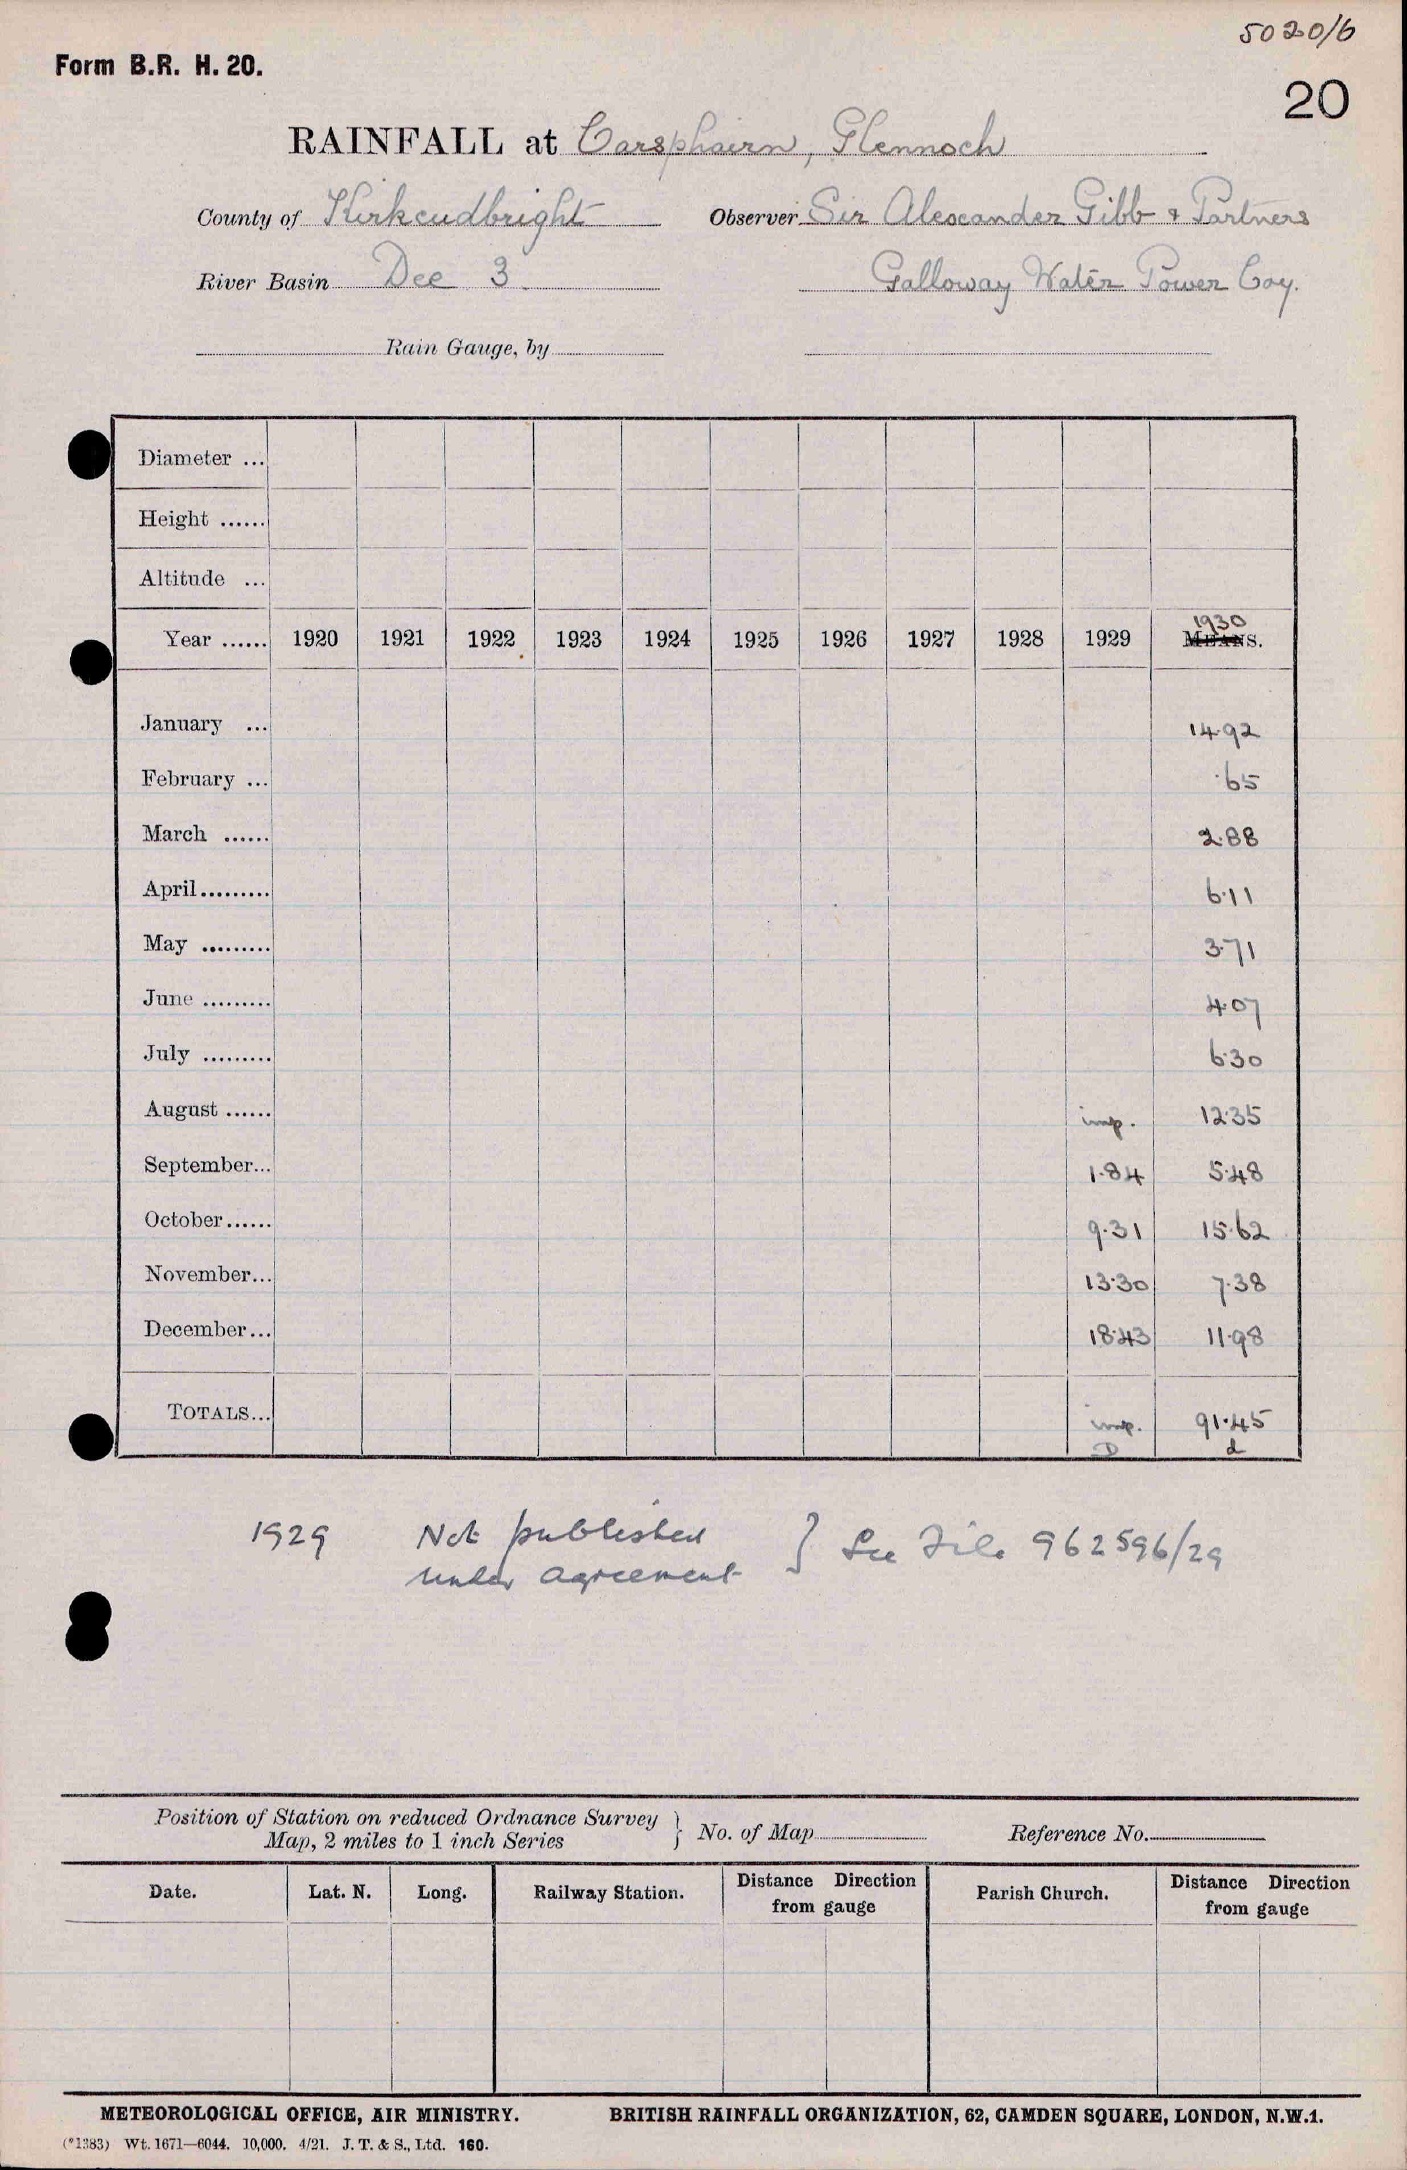 5020/6
Form B.R. H. 20.
20
RAINFALL at Carsphairn, Glennoch
County of Kirkcudbright Observer Sir Alexander Gibb & Partners
River Basin Dee 3 Galloway Water Power Coy.
Rain Gauge, by
Diameter ...
Height ......
Altitude ...
Year ...... 1920 1921 1922 1923 1924 1925 1926 1927 1928 1929 1930 MEANS.
January ... 14.92
February ... .65
March ...... 2.88
April......... 6.11
May ......... 3.71
June ......... 4.07
July ......... 6.30
August ...... imp. 12.35
September... 1.84 5.48
October...... 9.31 15.62
November... 13.30 7.38
December... 18.43 11.98
TOTALS... imp. 91.45
D d
1929 Not published } See File 962596/29
under agreement
Position of Station on reduced Ordnance Survey } No. of Map Reference No.
Map, 2 miles to 1 inch Series
Date. Lat. N. Long. Railway Station. Distance Direction Parish Church. Distance Direction
from gauge from gauge
METEOROLOGICAL OFFICE, AIR MINISTRY. BRITISH RAINFALL ORGANIZATION, 62, CAMDEN SQUARE, LONDON, N.W.1.
(*1383) Wt. 1671—6044. 10,000. 4/21. J. T. & S., Ltd. 160.